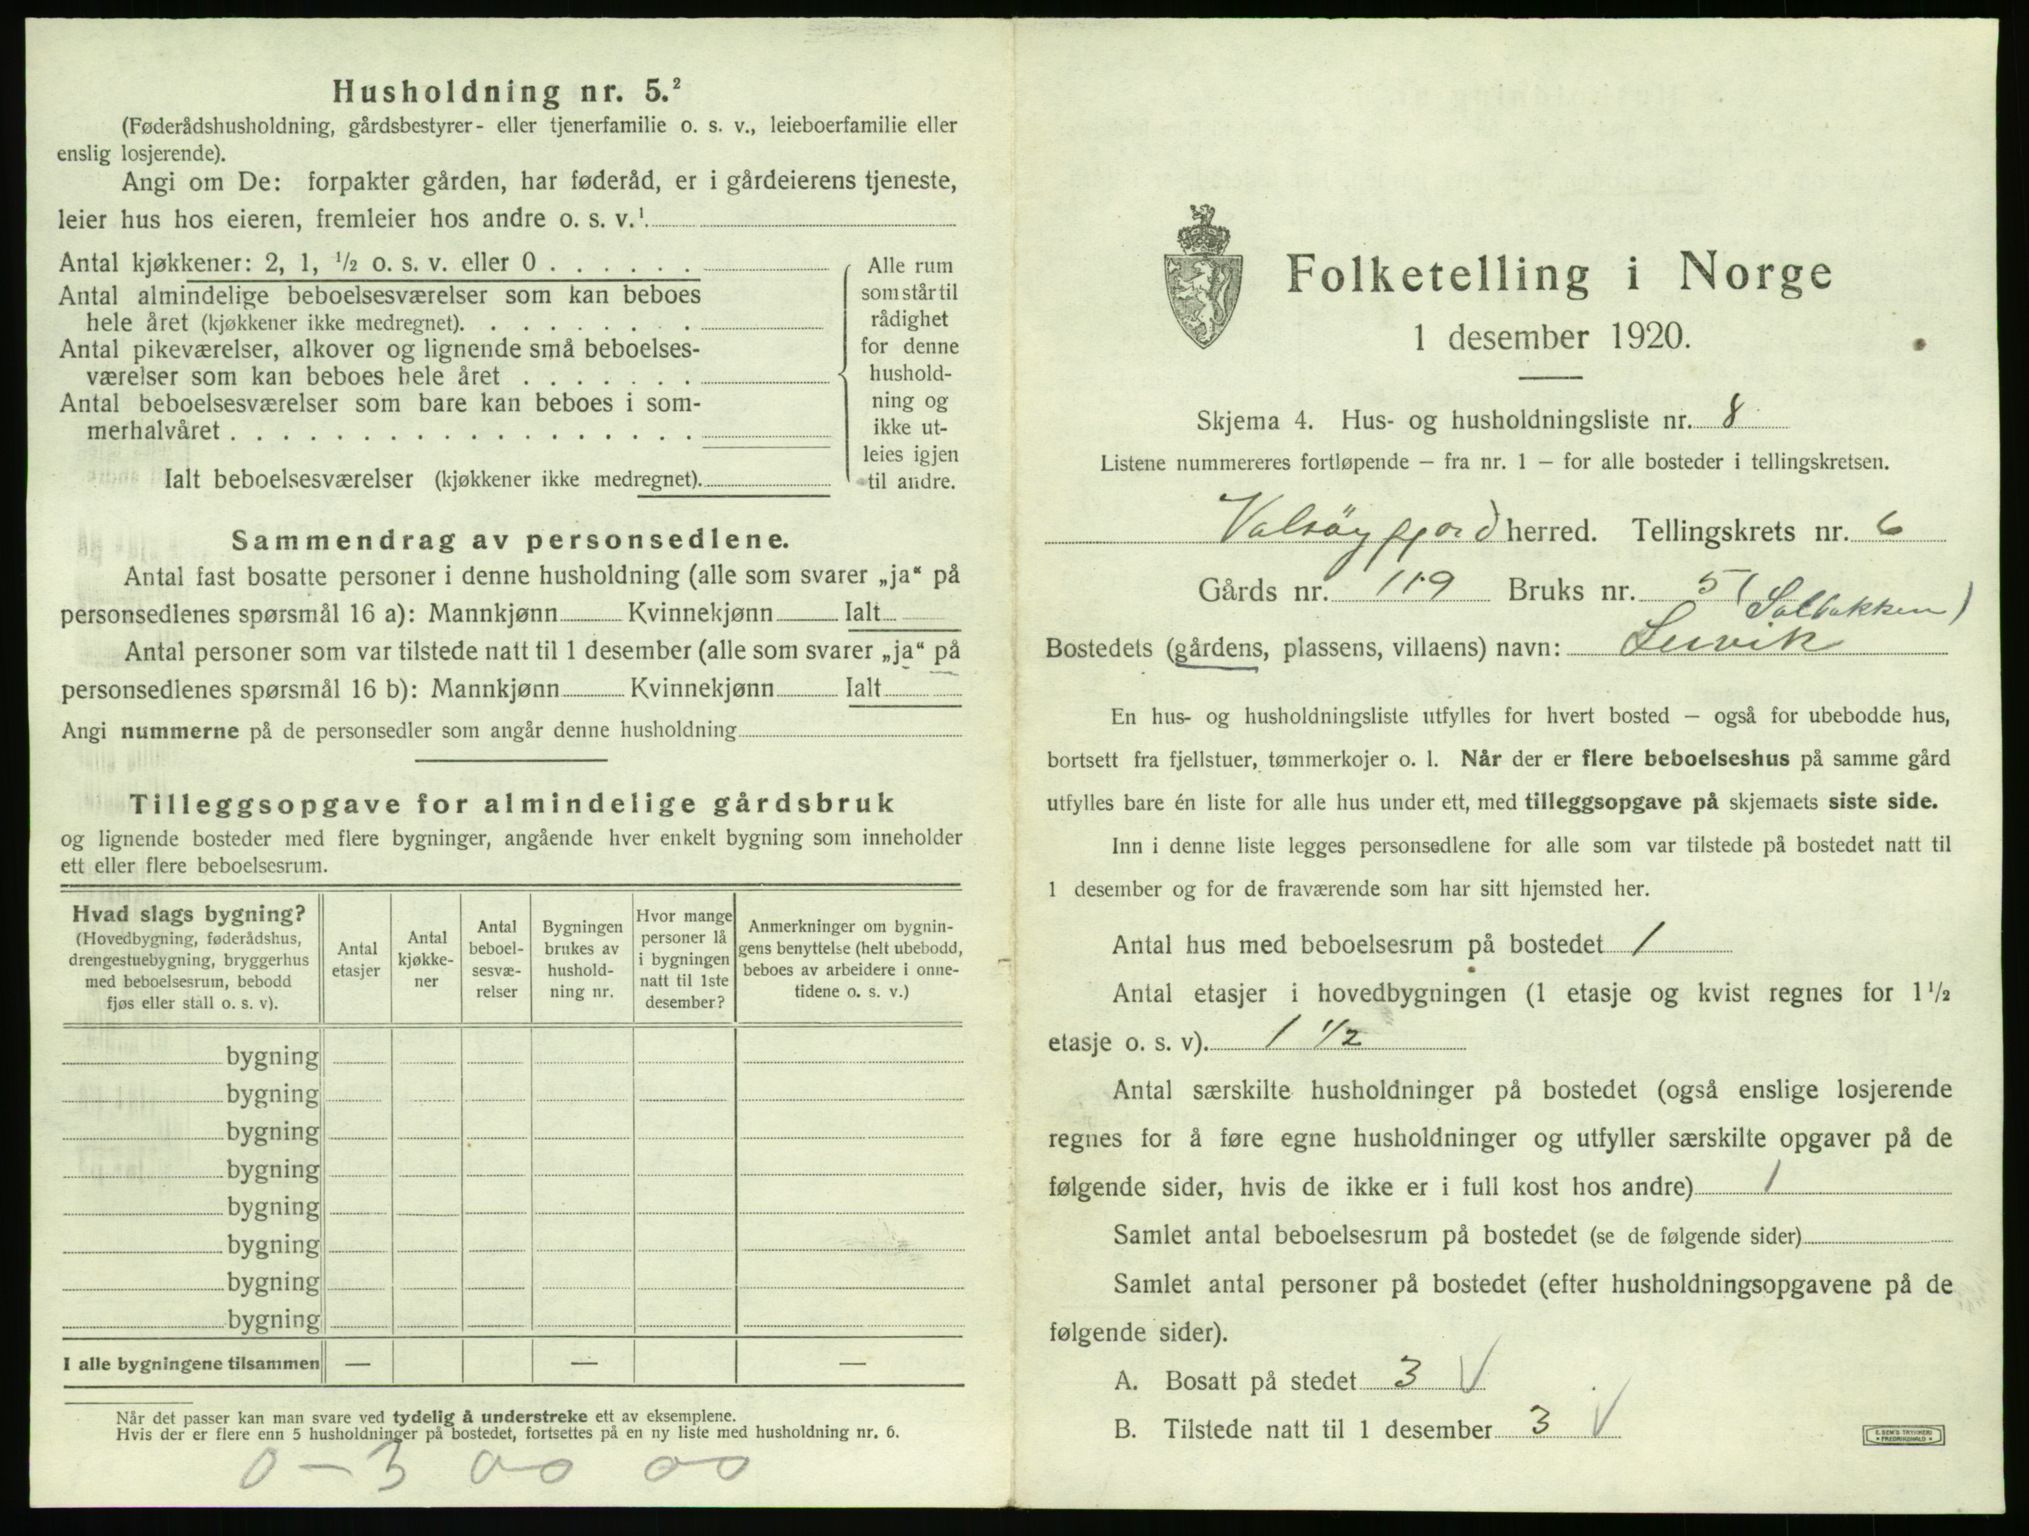 Husholdning nr. 5.²
(Føderådshusholdning, gårdsbestyrer- eller tjenerfamilie o. s. v., leieboerfamilie eller
enslig losjerende).
Angi om De: forpakter gården, har føderåd, er i gårdeierens tjeneste,
leier hus hos eieren, fremleier hos andre o. s. v.¹
Antal kjøkkener: 2, 1, ½ o. s. v. eller 0
Antal almindelige beboelsesværelser som kan beboes
hele året (kjøkkener ikke medregnet).
Antal pikeværelser, alkover og lignende små beboelses-
værelser som kan beboes hele året
Antal beboelsesværelser som bare kan beboes i som-
merhalvåret
Ialt beboelsesværelser (kjøkkener ikke medregnet).
Alle rum
som står til
rådighet
for denne
hushold-
ning og
ikke ut-
leies igjen
til andre.
Sammendrag av personsedlene.
Antal fast bosatte personer i denne husholdning (alle som svarer „ja“ på
personsedlenes spørsmål 16 a): Mannkjønn Kvinnekjønn Ialt
Antal personer som var tilstede natt til 1 desember (alle som svarer „ja“ på
personsedlenes spørsmål 16 b): Mannkjønn Kvinnekjønn Ialt
Angi nummerne på de personsedler som angår denne husholdning
Tilleggsopgave for almindelige gårdsbruk
og lignende bosteder med flere bygninger, angående hver enkelt bygning som inneholder
ett eller flere beboelsesrum.
Hvad slags bygning?
(Hovedbygning, føderådshus,
drengestuebygning, bryggerhus
med beboelsesrum, bebodd
fjøs eller stall o. s. v).
Antal
etasjer
Antal
kjøkke-
ner
Antal
beboel-
sesvæ-
relser
Bygningen
brukes av
hushold-
ning nr.
Hvor mange
personer lå
i bygningen
natt til 1ste
desember?
Anmerkninger om bygnin-
gens benyttelse (helt ubebodd,
beboes av arbeidere i onne-
tidene o. s. v.)
bygning
bygning
bygning
bygning
bygning
bygning
bygning
bygning
I alle bygningene tilsammen — — —
Når det passer kan man svare ved tydelig å understreke ett av eksemplene.
Hvis der er flere enn 5 husholdninger på bostedet, fortsettes på en ny liste med husholdning nr. 6.
0 – 3 00 00
Folketelling i Norge
1 desember 1920.
Skjema 4. Hus- og husholdningsliste nr. 8
Listene nummereres fortløpende – fra nr. 1 – for alle bosteder i tellingskretsen.
Valsøyfjord herred. Tellingskrets nr. 6
Gårds nr. 119 Bruks nr. 5 (Solbakken)
Bostedets (gårdens, plassens, villaens) navn: Leervik
En hus- og husholdningsliste utfylles for hvert bosted – også for ubebodde hus,
bortsett fra fjellstuer, tømmerkojer o. l. Når der er flere beboelseshus på samme gård
utfylles bare én liste for alle hus under ett, med tilleggsopgave på skjemaets siste side.
Inn i denne liste legges personsedlene for alle som var tilstede på bostedet natt til
1 desember og for de fraværende som har sitt hjemsted her.
Antal hus med beboelsesrum på bostedet 1
Antal etasjer i hovedbygningen (1 etasje og kvist regnes for 1½
etasje o. s. v). 1 ½
Antal særskilte husholdninger på bostedet (også enslige losjerende
regnes for å føre egne husholdninger og utfyller særskilte opgaver på de
følgende sider, hvis de ikke er i full kost hos andre) 1
Samlet antal beboelsesrum på bostedet (se de følgende sider)
Samlet antal personer på bostedet (efter husholdningsopgavene på de
følgende sider).
A. Bosatt på stedet 3 V
B. Tilstede natt til 1 desember 3 V
E. SEM'S TRYKKERI
FREDRIKSHALD